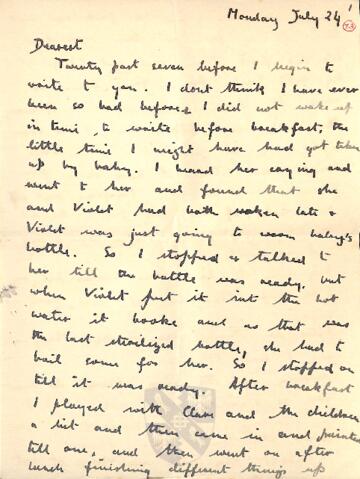 Monday July 24
Dearest
Twenty past seven before I begin to
write to you. I dont think I have ever
been so bad before. I did not wake up
in time to write before breakfast, the
little time I might have had got taken
up by baby. I heard her crying and
went to her and found that she
and Violet had both woken late &
Violet was just going to warm baby's
bottle. So I stopped & talked to
her till the bottle was ready, but
when Violet put it into the hot
water it broke and as that was
the last sterilized bottle, she had to
boil some for her. So I stopped on
till it was ready. After breakfast
I played with Clare and the children
a bit and then came in and painted
till one, and then went on after
lunch finishing different things up